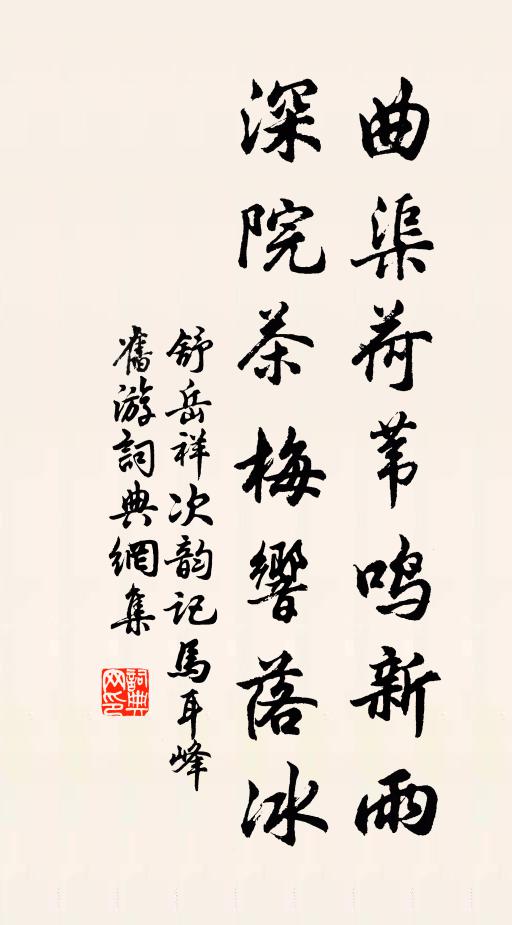 曲渠荷苇鸣新雨
深院茶梅響落冰
舒岳祥次韵记馬耳峰
舊游詞典網集
詞典网印